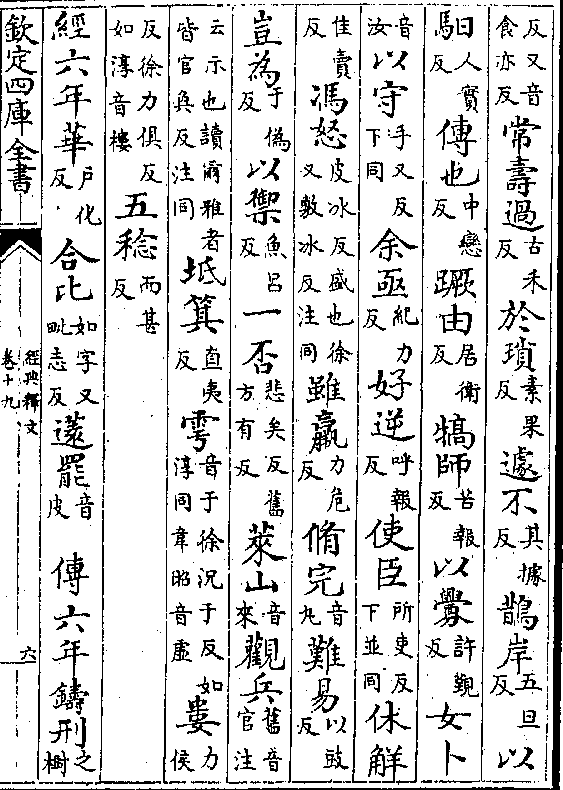 反又音食亦反常壽過古禾反於瑣素果反遽不其據反鵲岸五旦反以
馹人實反傳也中戀反蹶由居衛反犒師苦報反以釁許覲反女卜
音汝以守手又反下同余亟紀力反好逆呼報反使臣所吏反下並同休解
佳賣反馮怒皮冰反盛也徐又敷冰反注同雖羸力危反脩完音丸難易以豉反
豈為于偽反以禦魚呂反一否悲矣反舊方有反萊山音來觀兵舊音官注
云示也讀爾雅者皆官奐反注同坻箕直夷反雩音于徐況于反如淳同韋昭音虛婁力侯
反徐力俱反如淳音樓五稔而甚反
經六年華戶化反合比如字又毗志反薳罷音皮 傳六年鑄刑之樹
欽定四庫全書
經典釋文
卷十九
六